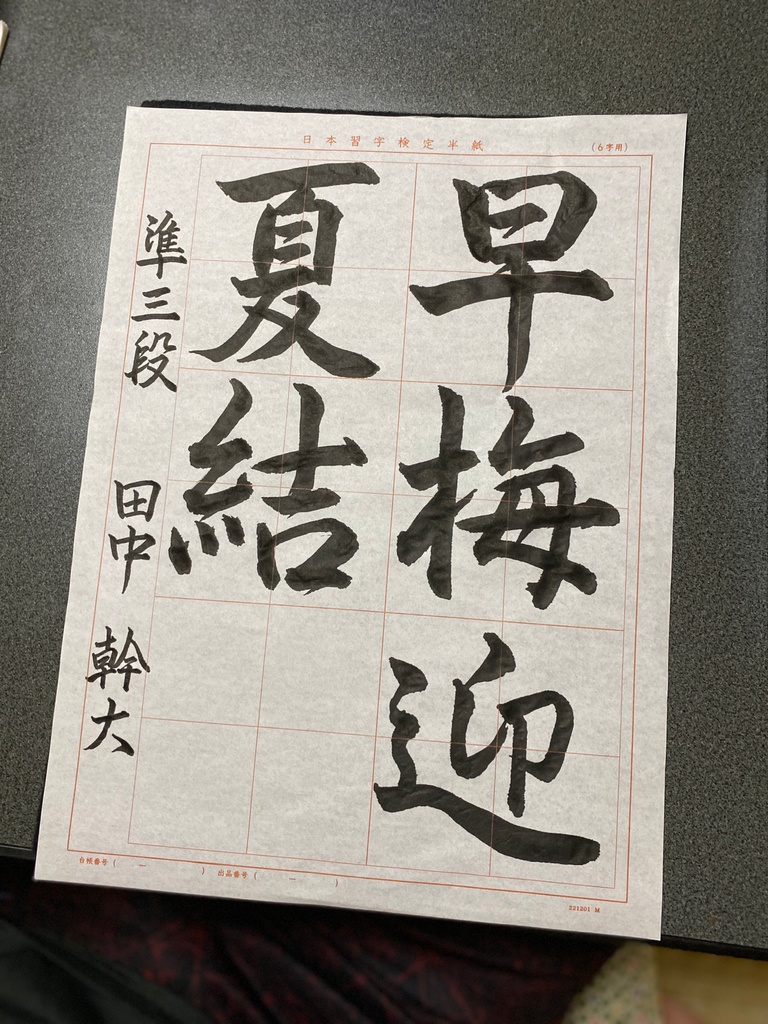 日本習字検定半紙
(6字用)
早梅迎
夏結
準三段 田中 幹大
台帳番号 ( ー ) 出品番号 ( ー )
221201 M